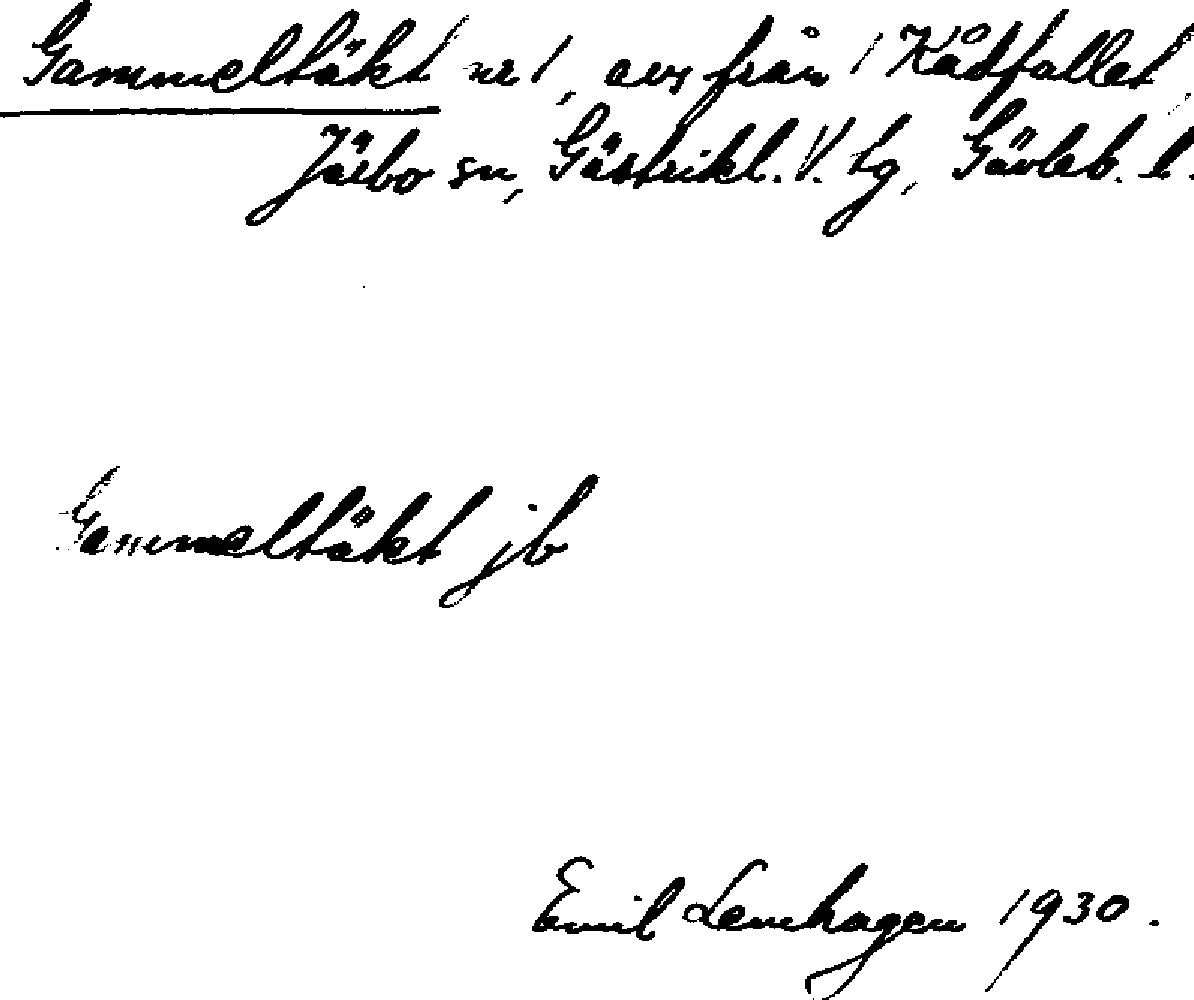 Gammeltäkt nr 1, avs från 1 Kådfallet,
Järbo sn, Gästrikl. V. tg, Gävleb. l.
Gammeltäkt jb
Emil Lenhagen 1930.